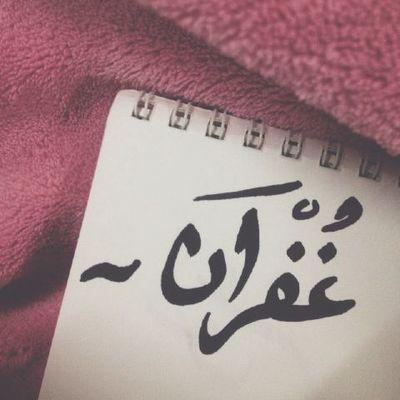 غُفْرَان ~